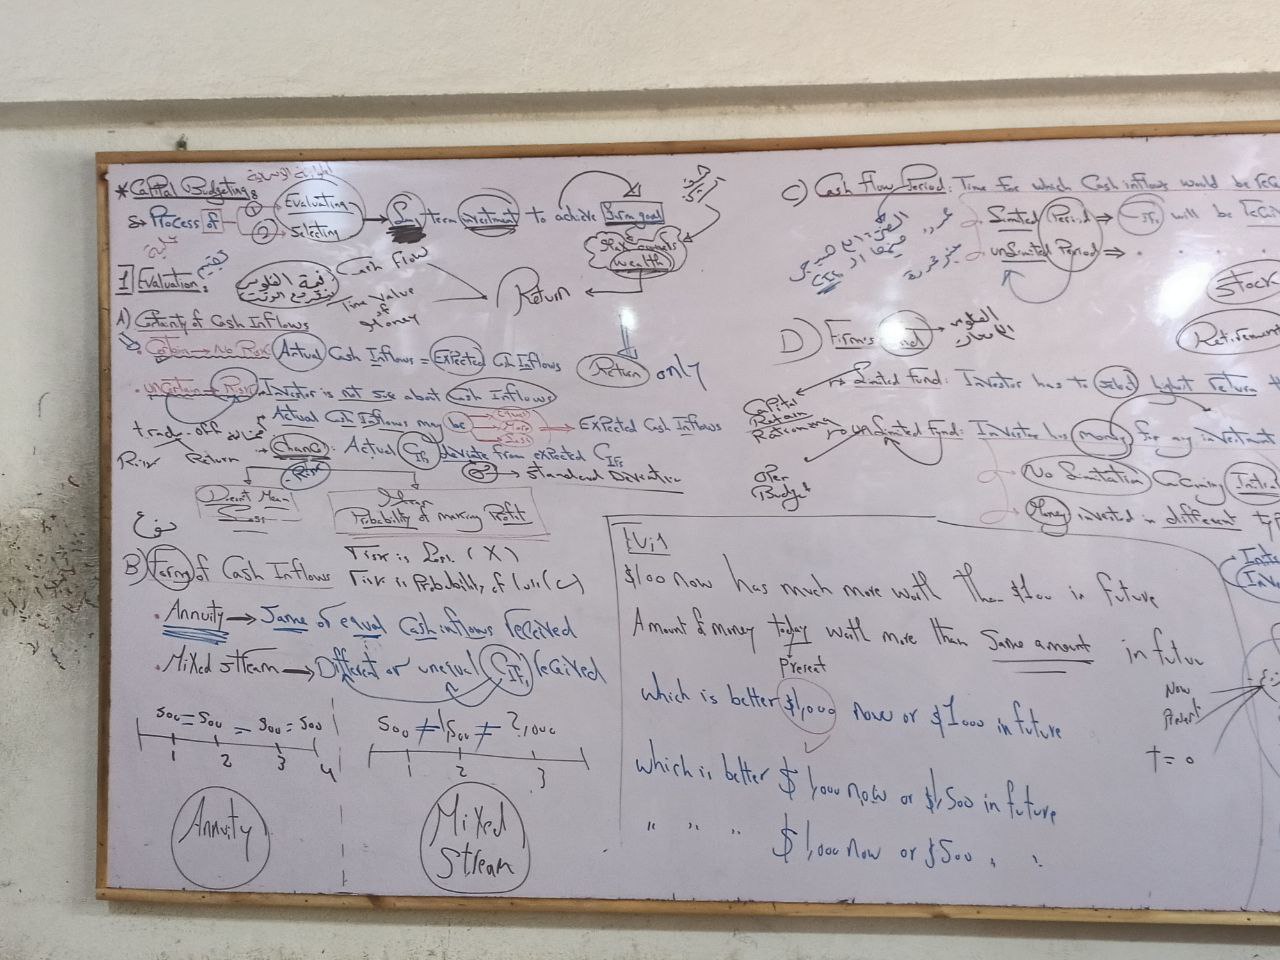 * Capital Budgeting:
Process of
① Evaluating
② Selecting
→ Long term investment to achieve firm goal
wealth
1 Evaluation:
تقييم
قيمة الفلوس
Cash Flow
Time Value of Money
Return
A) Certainty of Cash Inflows
Certain → No Risk Actual Cash Inflows = Expected Cash Inflows
Return only
uncertain → Risk Investor is not sure about Cash Inflows
Actual Cash Inflows may be
Equal
More
Less
→ Expected Cash Inflows
trade-off
Risk Return
chance: Actual CIFs deviate from expected CIFs
Risk
→ standard Deviation
Doesn't Mean Loss
Probability of making Profit
Risk is Loss (X)
Risk is Probability of Loss
نوع
B) Form of Cash Inflows
• Annuity → Same or equal Cash inflows received
• Mixed stream → Different or unequal CIFs received
500 = 500 = 500 = 500
1 2 3 4
Annuity
500 ≠ 1,500 ≠ 2,000
1 2 3
Mixed Stream
C) Cash Flow Period: Time for which Cash inflows would be
Limited Period ⇒ CIFs will be
unlimited Period ⇒
Stock
Retirement
D) Firm's Fund
Limited Fund: Investor has to select highest return
Capital
unlimited Fund: Investor has money for any investment
Oper Budget
No Limitation Concerning Initial
Money invested in different
$100 now has much more worth than $100 in future
Amount of money today worth more than same amount in future
Present
which is better $1,000 now or $1000 in future
which is better $1,000 now or $1,500 in future
" " " $1,000 now or $500 " "
Now
Present
t = 0